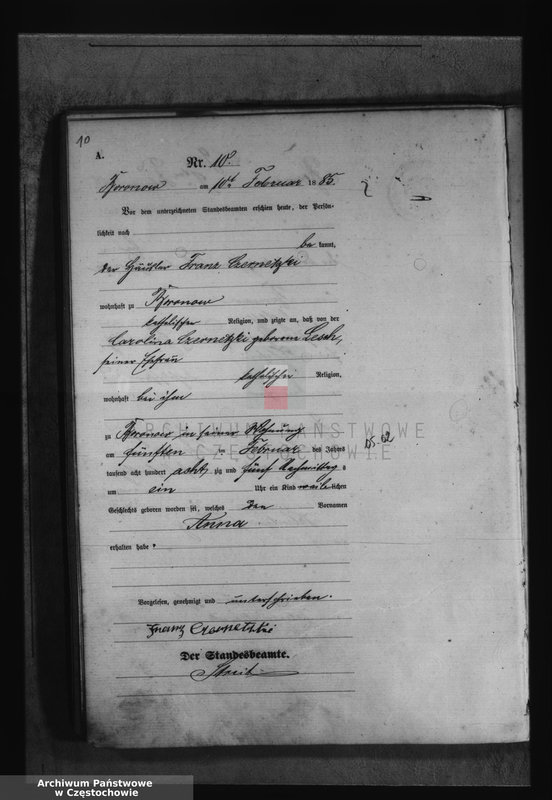 10
A.
Nr. 10.
Koronow am 10ten Februar 1885.
Vor dem unterzeichneten Standesbeamten erschien heute, der Persön-
lichkeit nach
be kannt,
der Häusler Franz Czernetzki
wohnhaft zu Koronow
katholischer Religion, und zeigte an, daß von der
Carolina Czernetzki geborene Lesch,
seiner Ehefrau
katholischer Religion,
wohnhaft bei ihm
zu Koronow in seiner Wohnung
am fünften Februar des Jahres
tausend acht hundert acht zig und fünf Nachmittag s
um ein Uhr ein Kind weiblichen
Geschlechts geboren worden sei, welches den Vornamen
Anna
erhalten habe
Vorgelesen, genehmigt und unterschrieben.
Franz Czernetzki
Der Standesbeamte.
ARCHIWUM PAŃSTWOWE
W CZĘSTOCHOWIE
Archiwum Państwowe
w Częstochowie